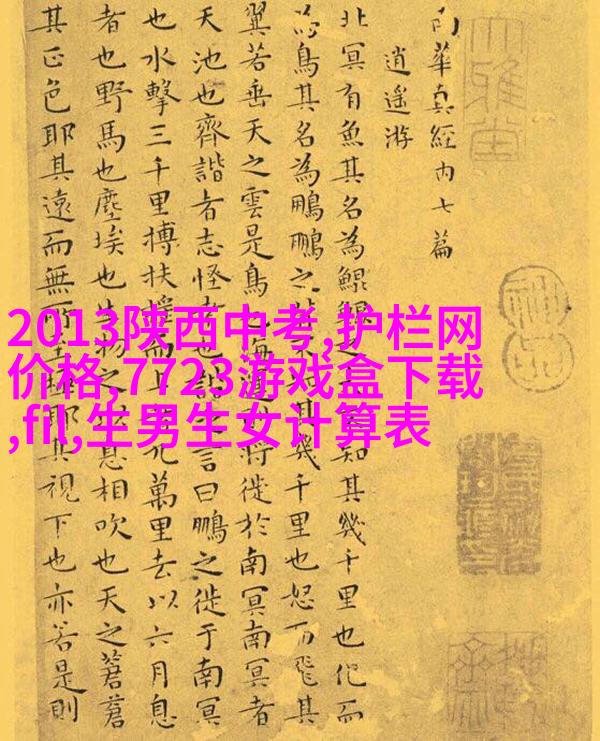 大雅堂
神品
南華真經内七篇
逍遥游
北冥有魚其名為鯤鯤之知其幾千里也化而
為鳥其名為鵬鵬之背不其幾千里也怒而飛其
翼若垂天之雲是鳥也海運將徙於南冥南冥者
天池也齊諧者志怪者也之言曰鵬之徙于南冥
也水擊三千里搏扶摇而上九萬里去以六月息
者也野馬也塵埃也生物之息相吹也天之蒼蒼
其正色耶其遠而無所至極耶其視下也亦若是則
2013陕西中考,护栏网
价格,7723游戏盒下载
,fil,生男生女计算表